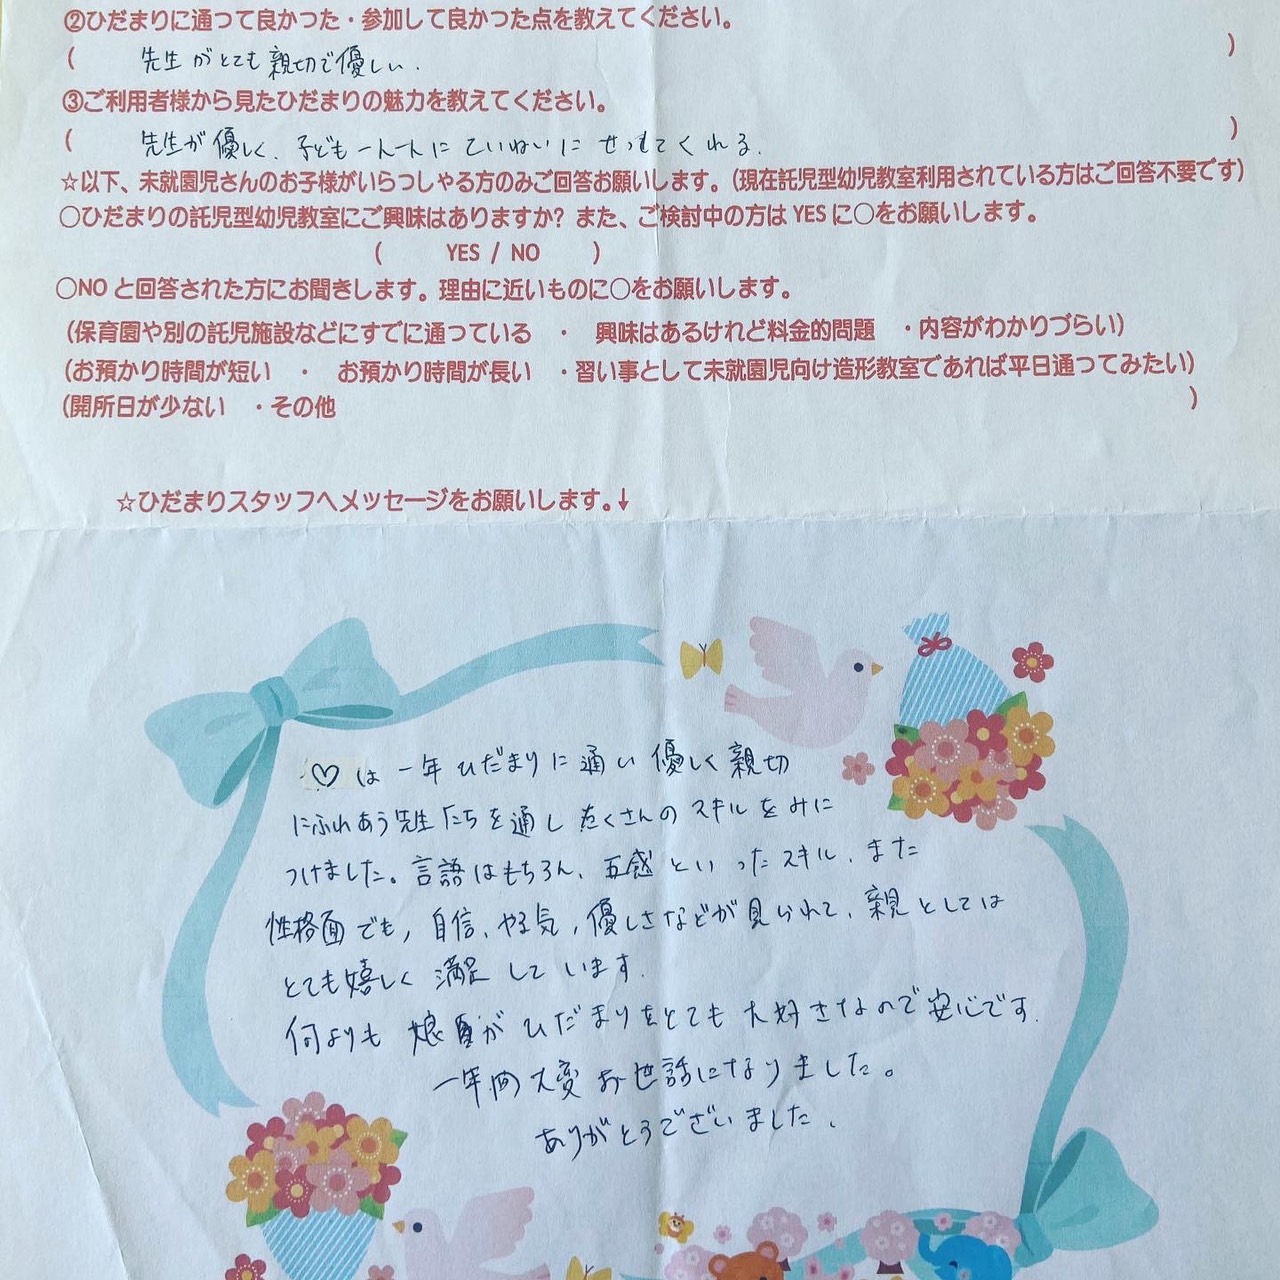 ②ひだまりに通って良かった・参加して良かった点を教えてください。
( 先生がとても親切で優しい. )
③ご利用者様から見たひだまりの魅力を教えてください。
( 先生が優しく、子ども一人一人にていねいにせっしてくれる. )
☆以下、未就園児さんのお子様がいらっしゃる方のみご回答お願いします。(現在託児型幼児教室利用されている方はご回答不要です)
○ひだまりの託児型幼児教室にご興味はありますか? また、ご検討中の方は YES に○をお願いします。
( YES / NO )
○NO と回答された方にお聞きします。理由に近いものに○をお願いします。
(保育園や別の託児施設などにすでに通っている ・ 興味はあるけれど料金的問題 ・内容がわかりづらい)
(お預かり時間が短い ・ お預かり時間が長い ・習い事として未就園児向け造形教室であれば平日通ってみたい)
(開所日が少ない ・その他 )
☆ひだまりスタッフへメッセージをお願いします。↓
♡は一年ひだまりに通い優しく親切
にふれあう先生たちを通したくさんのスキルをみに
つけました。言語はもちろん、五感といったスキル、また
性格面でも、自信、やる気、優しさなどが見られて、親としては
とても嬉しく満足しています.
何よりも娘自身がひだまりをとても大好きなので安心です.
一年間大変お世話になりました。
ありがとうございました.